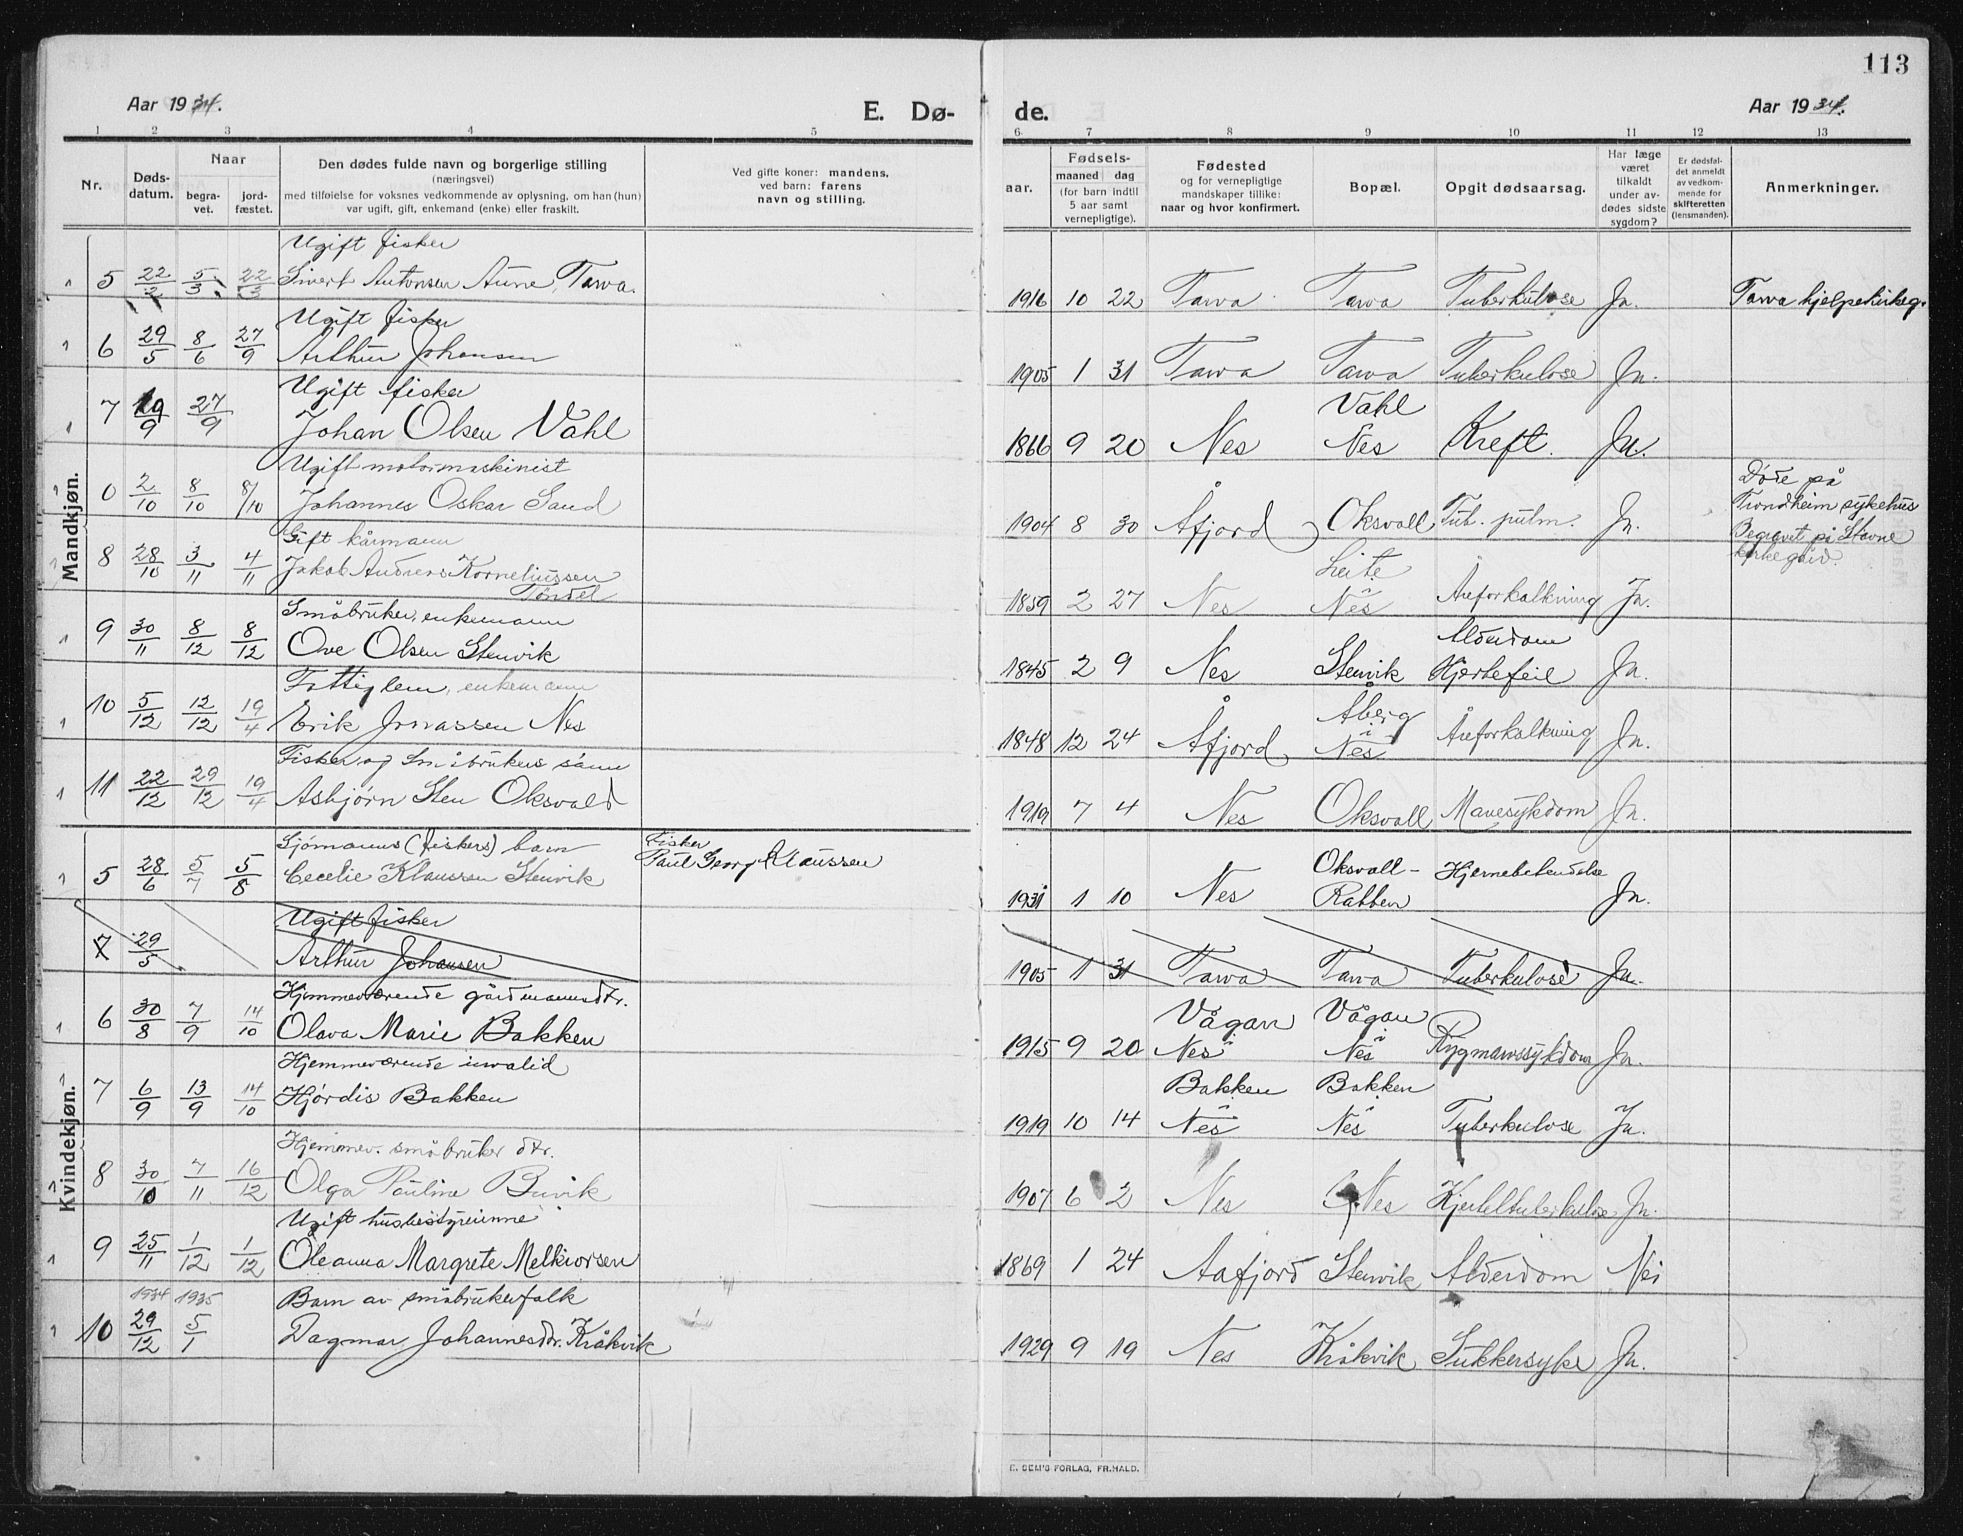 113
Aar 1934.
E. Dø-
de.
Aar 1934.
1 2 3 4 5 6 7 8 9 10 11 12 13
Nr.
Døds-
datum.
Naar
begra-
vet.
jord-
fæstet.
Den dødes fulde navn og borgerlige stilling
(næringsvei)
med tilføielse for voksnes vedkommende av oplysning, om han (hun)
var ugift, gift, enkemand (enke) eller fraskilt.
Ved gifte koner: mandens,
ved barn: farens
navn og stilling.
aar.
Fødsels-
maaned dag
(for barn indtil
5 aar samt
vernepligtige).
Fødested
og for vernepligtige
mandskaper tillike:
naar og hvor konfirmert.
Bopæl.
Opgit dødsaarsag.
Har læge
været
tilkaldt
under av-
dødes sidste
sygdom?
Er dødsfal-
det anmeldt
av vedkom-
mende for
skifteretten
(lensmanden).
Anmerkninger.
Mandkjøn.
Ugift fisker
5 22/2 5/3 22/3 Sivert Antonsen Aune, Tarva. 1916 10 22 Tarva Tarva Tuberkulose Ja. Tarva hjelpekirkeg.
Ugift fisker
6 29/5 8/6 27/9 Arthur Johansen 1905 1 31 Tarva Tarva Tuberkulose Ja.
Ugift fisker Vahl
7 19/9 27/9 Johan Olsen Vahl 1866 9 20 Nes Nes Kreft. Ja.
Ugift motormaskinist Døde på
0 2/10 8/10 8/10 Johannes Oskar Sand 1904 8 30 Åfjord Oksvoll Tub. pulm. Ja. Trondheim sykehus
Begravet på Stavne
kirkegård.
Gift kårmann Leite
8 28/10 3/11 4/11 Jakob Andreas Korneliussen 1859 2 27 Nes i Nes Åreforkalkning Ja.
Tøndel
Småbruker, enkemann Alderdom
9 30/11 8/12 8/12 Ove Olsen Stenvik 1845 2 9 Nes Stenvik Hjertefeil Ja.
Fattiglem, enkemann Åberg
10 5/12 12/12 19/4 Erik Jonassen Nes 1848 12 24 Åfjord i Nes Åreforkalkning Ja.
Fisker og Småbrukers sønn
11 22/12 29/12 19/4 Asbjørn Sten Oksvold 1919 7 4 Nes Oksvoll Mavesykdom Ja.
Kvindekjøn.
Sjømanns (fiskers) barn Fisker Oksvoll-
5 28/6 5/7 5/8 Cecelie Klaussen Stenvik Paul Georg Klaussen 1931 1 10 Nes Rabben Hjernebetendelse Ja.
Ugift fisker
7 29/5 Arthur Johansen 1905 1 31 Tarva Tarva Tuberkulose Ja.
Hjemmeværende gårdmannsdtr. Vågan Vågan
6 30/8 7/9 14/10 Olava Marie Bakken 1915 9 20 i Nes i Nes Rygmarvssykdom Ja.
Hjemmeværende invalid Bakken Bakken
7 6/9 13/9 14/10 Hjørdis Bakken 1919 10 14 i Nes i Nes Tuberkulose Ja.
Hjemmev. småbruker dtr.
8 30/10 7/11 16/12 Olga Pauline Buvik 1907 6 2 Nes Nes Kjerteltuberkulose Ja.
Ugift husbestyrerinne
9 25/11 1/12 1/12 Oleanna Margrete Melkiorsen 1869 1 24 Aafjord Stenvik Alderdom Nei
1934 1935 Barn av småbrukerfolk
10 29/12 5/1 Dagmar Johannesdtr. Kråkvik 1929 9 19 Nes Kråkvik Sukkersyke Ja.
E. SEM'S FORLAG, FR.HALD.